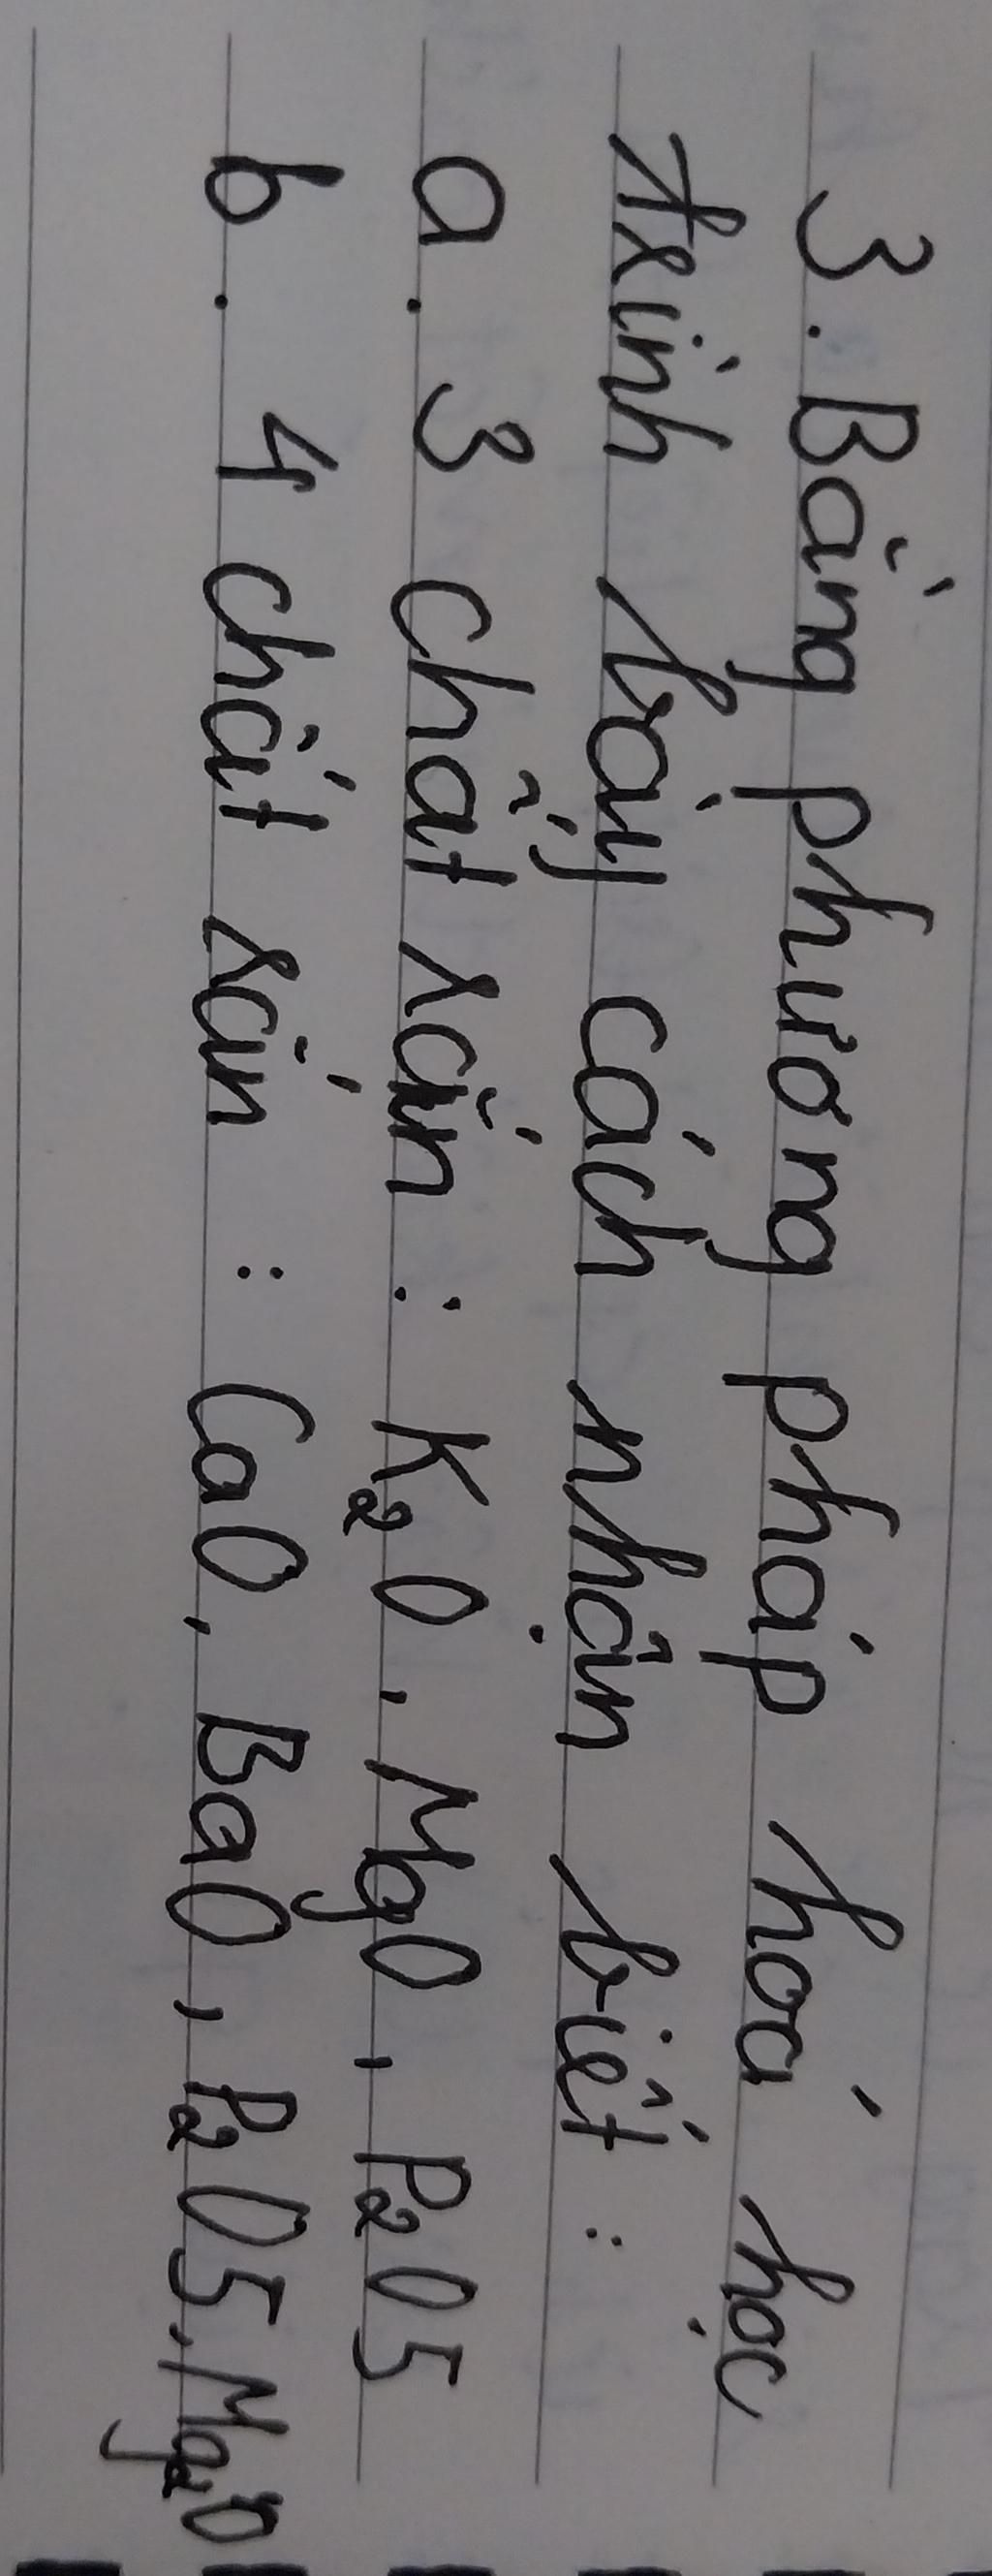 3. Bằng phương pháp hoá học
trình bày cách nhận biết :
a. 3 chất rắn : K₂O, MgO, P₂O5
b. 4 chất rắn : CaO, BaO, P₂O5, Mg₂O